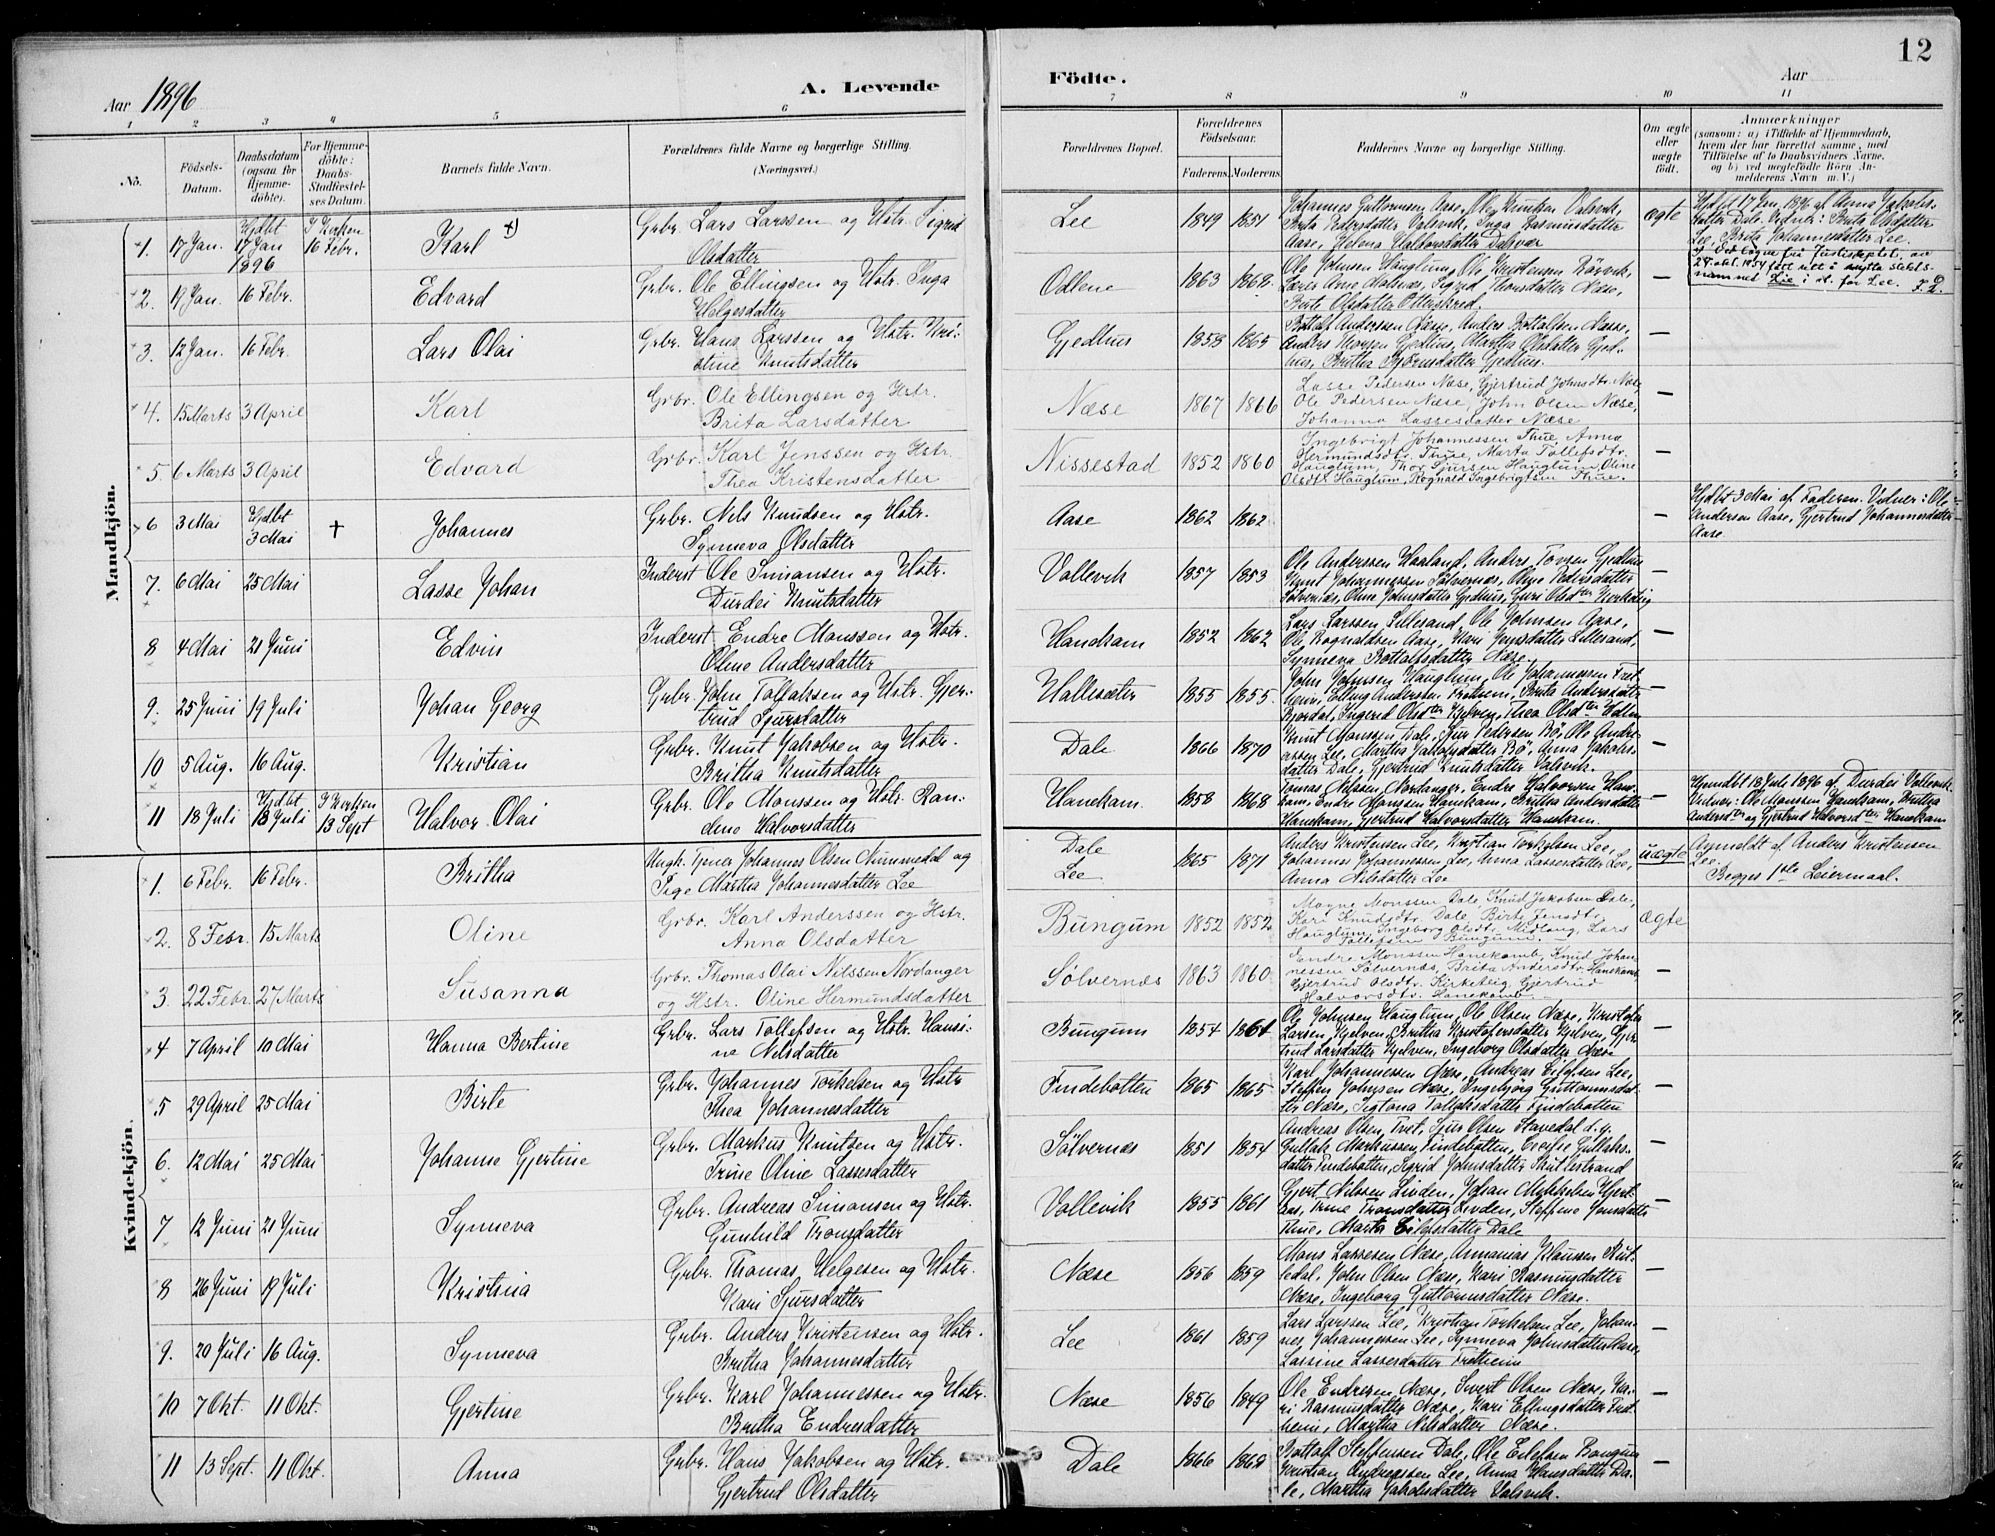 12
Aar 1896
A. Levende
Födte.
Aar
1 2 3 4 5 6 7 8 9 10 11
No.
Födsels-
Datum.
Daabsdatum
(ogsaa for
Hjemme-
döbte).
For Hjemme-
döbte:
Daabs-
Stadfæstel-
ses Datum.
Barnets fulde Navn.
Forældrenes fulde Navne og borgerlige Stilling.
(Næringsvei.)
Forældrenes Bopæl.
Forældrenes
Födselsaar.
Faderens. Moderens.
Faddernes Navne og borgerlige Stilling.
Om ægte
eller
uægte
födt.
Anmærkninger
(saasom: a) i Tilfælde af Hjemmedaab,
hvem der har forrettet samme, med
Tilföielse af to Daabsvidners Navne,
og b) ved uægtefödte Börn An-
melderens Navn m. V.)
Mandkjön.
1. 17 Jan. Hjdbt 17 Jan 1896 I Kirken 16 Febr. Karl x) Grbr. Lars Larssen og Hstr. Sigrid
Olsdatter
Lee 1849 1851 Johannes Guttormsen Aase, Ole Knutsen Valsvik,
Brita Pedersdatter Valsvik, Inga Rasmusdatter
Aase, Helena Halvorsdatter Dalsvær
ægte Hjdbt 17 Jan. 1896 af Anna Jakobs-
datter Dale. Vidner: Brita Olsdatter
Lee, Brita Johannesdatter Lee.
2. 19 Jan. 16 Febr. Edvard Grbr. Ole Ellingsen og Hstr. Inga
Helgesdatter
Odlene 1863 1868. Ole Johnsen Hauglum, Ole Kristensen Börvik,
Brite Olsdatter Otterskred —
x) Ved løyve frå Justisdeptet. av
24. okt. 1954 fått rett å nytta slekts-
namnet Lie i st. for Lee.
3. 12 Jan. 16 Febr. Lars Olai Grbr. Hans Larssen og Hstr. Kri-
stine Knutsdatter
Gjedhus 1858 1865 Bottolf Anderssen Næsse, Anders Bottolfsen Næsse,
Anders Thorsen Gjedhus, Martha Olsdatter Gjed-
hus, Brithe Björnsdatter Gjedhus. —
4. 15 Marts 3 April Karl Grbr. Ole Ellingsen og Hstr.
Brita Larsdatter
Næse 1867 1866 Lasse Pedersen Næse, Gjertrud Johnsdtr. Næse
Ole Pedersen Næse, John Olsen Næse,
Johanna Lassesdatter Næse —
5. 6 Marts 3 April Edvard Grbr. Karl Jenssen og Hstr.
Thea Kristensdatter
Nissestad 1852 1860 Ingebrigt Johannessen Thue, Anna
Hermundsdtr. Thue, Marta Tollefsdtr.
Hauglum, Thor Sjursen Hauglum, Oline
Olsdtr. Hauglum, Rognald Ingebrigtsen Thue. —
6 3 Mai Hjdbt 3 Mai † Johannes Grbr. Nils Knudsen og Hstr.
Synneva Olsdatter
Aase 1862 1862 — Hjdbt 3 Mai af Faderen. Vidner: Ole
Andersen Aase, Gjertrud Johannesdatter
Aase
7. 6 Mai 25 Mai Lasse Johan Inderst Ole Simonsen og Hstr.
Durdei Knutsdatter
Vallevik 1857 1853 Ole Anderssen Haaland, Anders Torsen Gjedhus
Knut Johannessen Sølvernæs, Oline Pedersdatter
Sølvernæs, Oline Johnsdatter Gjedhus, Guri Olsdtr Kirkelig —
8 4 Mai 21 Juni Edvin Inderst Endre Monssen og Hstr.
Oline Andersdatter
Hanekam 1852 1862 Lars Larssen Lillesand, Ole Johnsen Aase,
Ole Rognaldsen Aase, Kari Jonsdatter Lillesand,
Synneva Bottolfsdatter Næse —
9. 25 Juni 19 Juli Johan Georg Grbr. John Tollaksen og Hstr. Gjer-
trud Sjursdatter
Hallesæter 1855 1855. John Johnsen Hauglum, Ole Johannessen Fret
heim, Elling Anderssen Fretheim, Brita Andersdatter
Bjordal, Ingerid Olsdtr Kjelven, Thea Olsdtr —
10 5 Aug. 16 Aug. Kristian Grbr. Knut Jakobsen og Hstr.
Britha Knutsdatter
Dale 1866 1870 Knut Monssen Dale, Sjur Pedersen Bö, Ole Andre-
assen Lee, Martha Jakobsdatter Bö, Anna Jakobs-
datter Dale, Gjertrud Knutsdatter Valsvik. —
11 18 Juli Hjdbt 18 Juli I Kirken 13 Sept Halvor Olai Grbr. Ole Monssen og Hstr. Ran-
dine Halvorsdatter
Hanekam. 1858 1868 Tomas Nilssen Nordanger, Endre Halvorsen Hane
kam, Endre Monssen Hanekam, Britha Andersdatter
Hanekam, Gjertrud Halvorsdatter Hanekam. —
Hjemdbt 18 Juli 1896 af Durdei Vallevik.
Vidner: Ole Monssen Hanekam, Britha
Andersdtr og Gjertrud Halvorsdtr Hanekam
Kvindekjön.
1. 6 Febr. 16 Febr. Britha Ungk. Tjener Johannes Olsen Nummedal og
Pige Martha Johannesdatter Lee
Dale
Lee 1865 1871 Anders Kristensen Lee, Kristian Torkelsen Lee,
Johannes Johannessen Lee, Anna Lassesdatter Lee,
Anna Nilsdatter Lee
uægte Anmeldt af Anders Kristensen
Lee.
Begges 1ste Leiermaal.
2. 8 Febr. 15 Marts Oline Grbr. Karl Anderssen og Hstr.
Anna Olsdatter
Bungum 1852 1852 Mogne Monssen Dale, Knud Jakobsen Dale,
Kari Knudsdtr. Dale, Birte Jensdtr.
Hauglum, Ingeborg Olsdtr. Midlang, Lars
Tollefsen Bungum. — ægte
3. 22 Febr. 27 Marts Susanna Grbr. Thomas Olai Nilssen Nordanger
og Hstr. Oline Hermundsdatter
Sølvernæs 1863 1860 Endre Monssen Hanekamb, Knud Johan-
nessen Sølvernæs, Brita Andersdtr. Hanekamb,
Gjertrud Olsdtr. Kirkelig, Gjertrud
Halvorsdtr. Hanekamb. —
4 7 April 10 Mai Hanna Bertine Grbr. Lars Tollefsen og Hstr. Hansi-
ne Nilsdatter
Bungum 1854 1861 Ole Johnsen Hauglum, Ole Olsen Næse, Kristofer
Larsen, Kjelven, Britha Kristofersdatter Kjelven, Gjer-
trud Larsdatter Kjelven, Ingeborg Olsdatter Næse —
5 29 April 25 Mai Birte Grbr. Johannes Torkelsen og Hstr
Thea Johannesdatter
Findebotten 1865 1865 Karl Johannessen Næse, Andreas Eilefsen Lee,
Steffen Johnsen Næse, Ingebjörg Guttormsdat-
ter Næse, Sigtona Tollaksdatter Findebotten —
6. 12 Mai 25 Mai Johanne Gjertine Grbr. Markus Knutsen og Hstr.
Trine Oline Lassesdatter
Sølvernæs 1851 1854 Andreas Olsen, Tvet, Sjur Olsen Stavedal d.y.
Gullak Markussen Findebotten, Gullaks-
datter Findebotten, Sigrid Johnsdatter Skutlestrand —
7 12 Juni 21 Juni Synneva Grbr. Andreas Simonsen og Hstr.
Gunhild Tronsdatter
Vallevik 1855 1861 Gjert Nilssen Linden, Johan Mykkelsen Hjert-
aas, Trine Tronsdatter Linden, Steffine Jonsdatter
Thue, Marta Eilefsdatter Dale —
8 26 Juni 19 Juli Kristina Grbr. Thomas Helgesen og Hstr.
Kari Sjursdatter
Næse 1856 1859 Mons Lassesen Næse, Annanias Klausen Rut-
ledal, John Olsen Næse, Kari Rasmusdatter
Næse, Ingeborg Guttormsdatter Næse. —
9. 20 Juli 16 Aug. Synneva Grbr. Anders Kristensen og Hstr.
Britha Johannesdatter
Lee 1861 1859 Lars Larssen Lee, Kristian Torkelsen Lee, Johan-
nes Johannessen Lee, Synneva Johnsdatter Aase,
Lassine Lassesdatter Fretheim —
10 7 Okt. 11 Okt. Gjertine Grbr. Karl Johannessen og Hstr.
Britha Endresdatter
Næse 1856 1849 Ole Endresen Næse, Sivert Olsen Næse, Ka-
ri Rasmusdatter Næse, Kari Ellingsdatter Fret
heim, Martha Nilsdatter Næse. —
11 13 Sept. 11 Okt. Anna Grbr. Hans Jakobsen og Hstr.
Gjertrud Olsdatter
Dale 1866 1862 Bottolf Steffensen Dale, Ole Eilefsen Bungum
Kristian Andreassen Lee, Anna Hansdatter Da-
le, Martha Jakobsdatter Valsvik. —